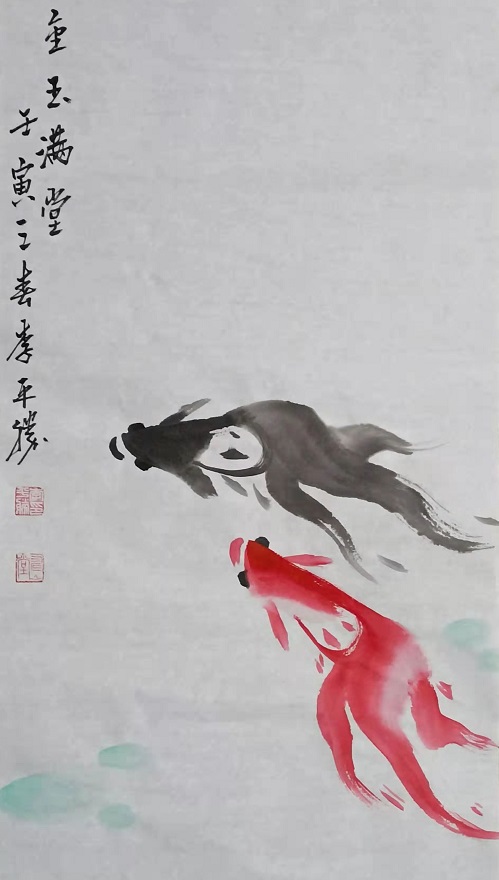 金玉满堂
壬寅之春李平胜